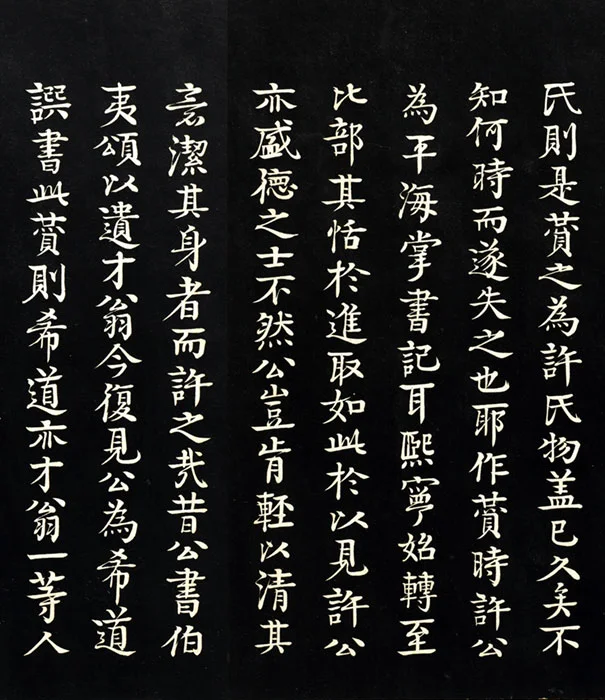 氏則是賛之為許氏物盖已久矣不
知何時而遂失之也耶作賛時許公
為平海掌書記耳熙寧始轉至
比部其恬於進取如此於以見許公
亦盛德之士不然公豈肯輕以清其
言潔其身者而許之㢤昔公書伯
夷頌以遺才翁今復見公為希道
譔書此賛則希道亦才翁一等人